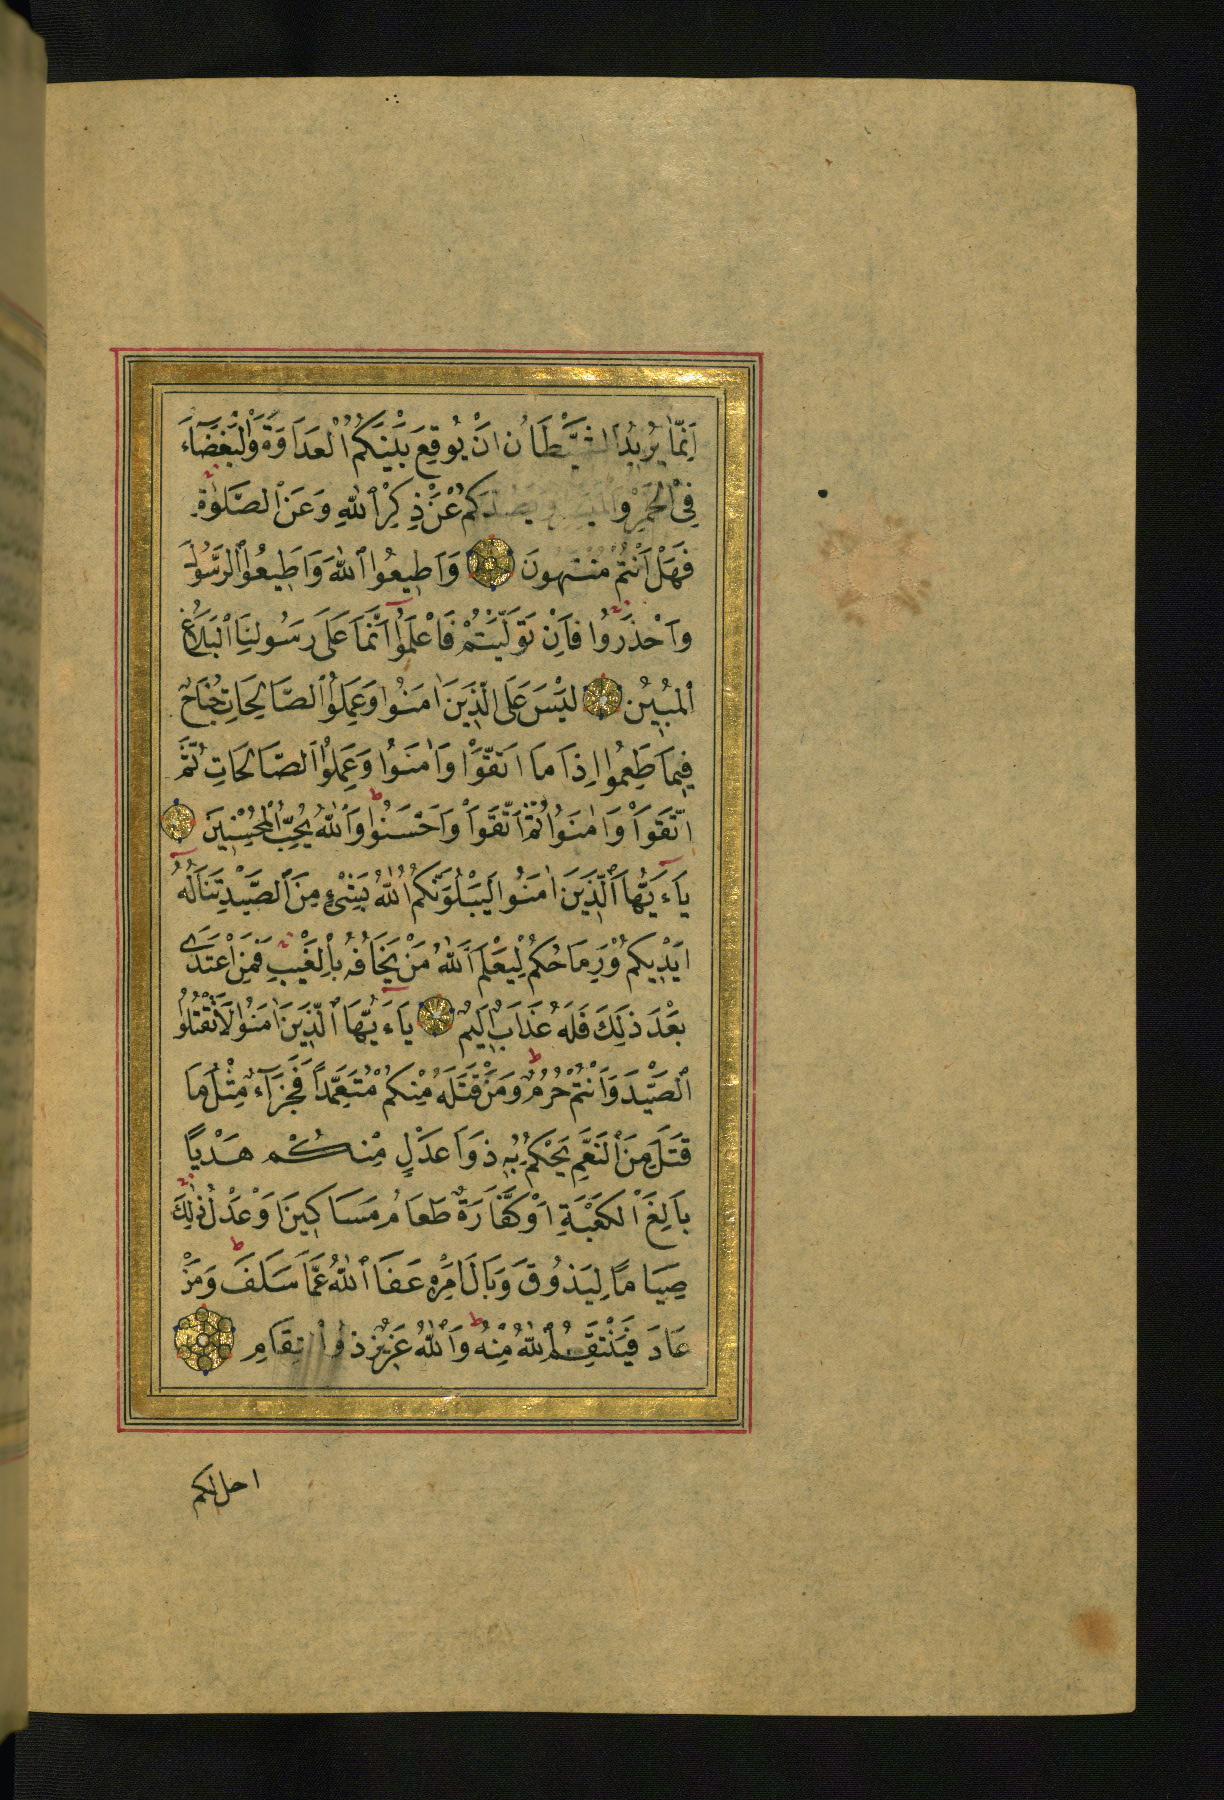 اِنَّمَا يُرِيدُ الشَّيْطَانُ اَنْ يُوقِعَ بَيْنَكُمُ الْعَدَاوَةَ وَالْبَغْضَآءَ
فِى الْخَمْرِ وَالْمَيْسِرِ وَيَصُدَّكُمْ عَنْ ذِكْرِ اللّٰهِ وَعَنِ الصَّلٰوةِ
فَهَلْ اَنْتُمْ مُنْتَهُونَ وَاَطِيعُوا اللّٰهَ وَاَطِيعُوا الرَّسُولَ
وَاحْذَرُوا فَاِنْ تَوَلَّيْتُمْ فَاعْلَمُوا اَنَّمَا عَلَى رَسُولِنَا الْبَلَاغُ
الْمُبِينُ لَيْسَ عَلَى الَّذِينَ اٰمَنُوا وَعَمِلُوا الصَّالِحَاتِ جُنَاحٌ
فِيمَا طَعِمُوا اِذَا مَا اتَّقَوْا وَاٰمَنُوا وَعَمِلُوا الصَّالِحَاتِ ثُمَّ
اتَّقَوْا وَاٰمَنُوا ثُمَّ اتَّقَوْا وَاَحْسَنُوا وَاللّٰهُ يُحِبُّ الْمُحْسِنِينَ
يَآءَيُّهَا الَّذِينَ اٰمَنُوا لَيَبْلُوَنَّكُمُ اللّٰهُ بِشَىْءٍ مِنَ الصَّيْدِ تَنَالُهُ
اَيْدِيكُمْ وَرِمَاحُكُمْ لِيَعْلَمَ اللّٰهُ مَنْ يَخَافُهُ بِالْغَيْبِ فَمَنِ اعْتَدَى
بَعْدَ ذٰلِكَ فَلَهُ عَذَابٌ اَلِيمٌ يَآءَيُّهَا الَّذِينَ اٰمَنُوا لَا تَقْتُلُوا
الصَّيْدَ وَاَنْتُمْ حُرُمٌ وَمَنْ قَتَلَهُ مِنْكُمْ مُتَعَمِّدًا فَجَزَآءٌ مِثْلُ مَا
قَتَلَ مِنَ النَّعَمِ يَحْكُمُ بِهِ ذَوَا عَدْلٍ مِنْكُمْ هَدْيًا
بَالِغَ الْكَعْبَةِ اَوْ كَفَّارَةٌ طَعَامُ مَسَاكِينَ اَوْ عَدْلُ ذٰلِكَ
صِيَامًا لِيَذُوقَ وَبَالَ اَمْرِهِ عَفَا اللّٰهُ عَمَّا سَلَفَ وَمَنْ
عَادَ فَيَنْتَقِمُ اللّٰهُ مِنْهُ وَاللّٰهُ عَزِيزٌ ذُو انْتِقَامٍ
احل لكم